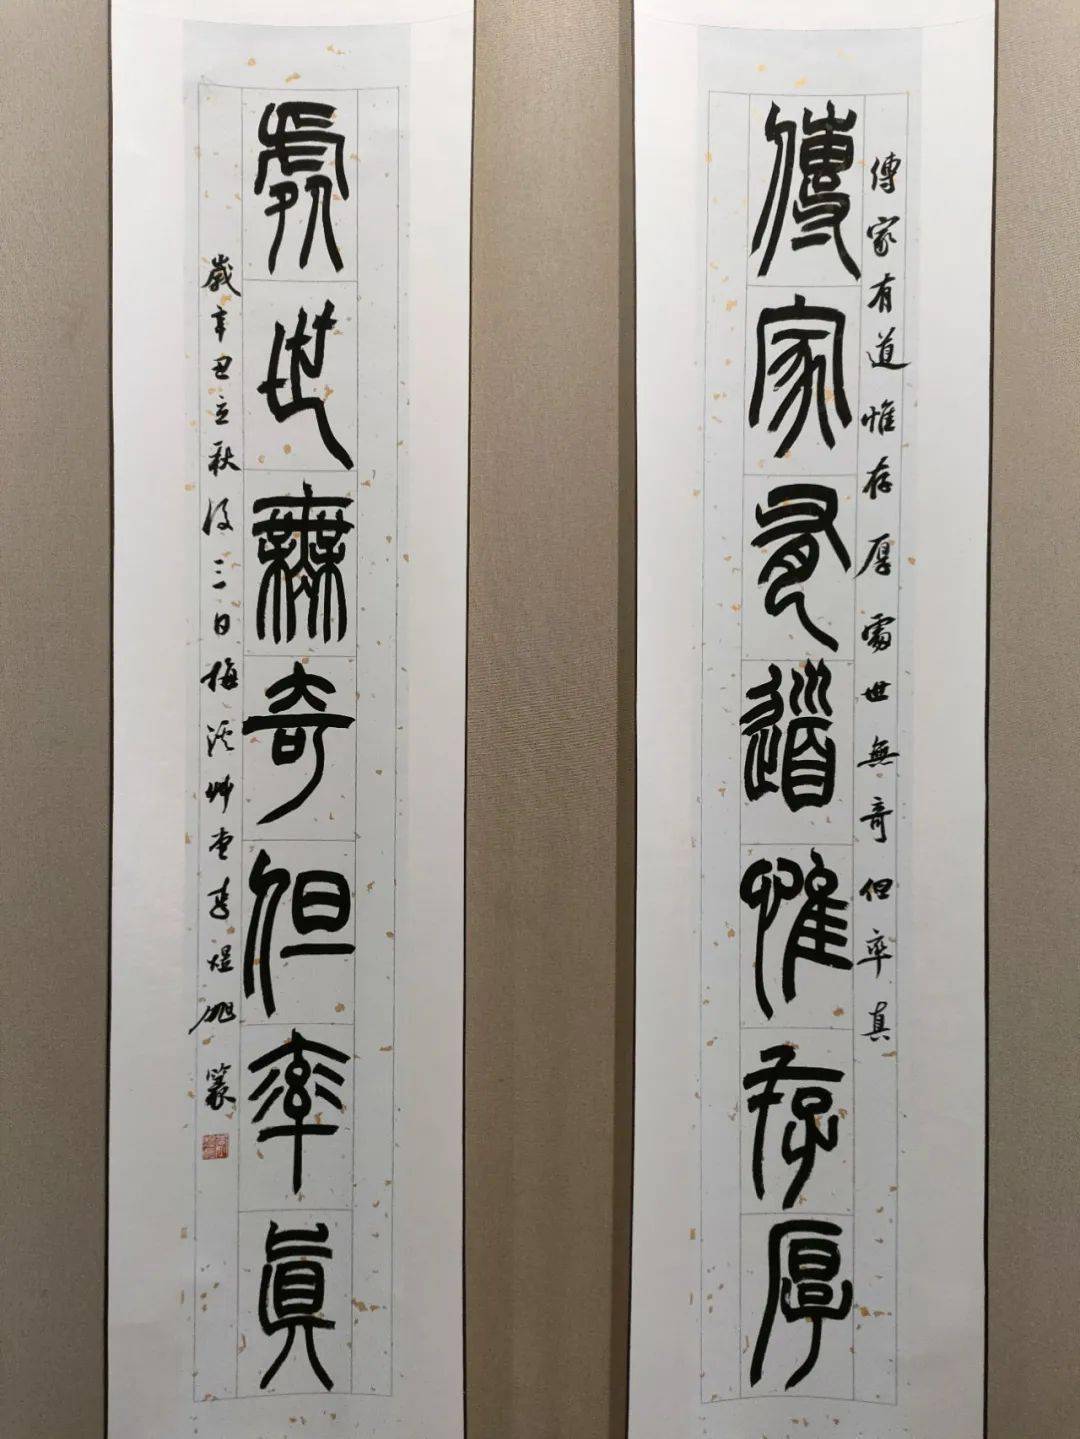 傳家有道惟存厚處世無奇但率真
傳家有道惟存厚
處世無奇但率真
歲辛丑立秋後三日梅溪艸堂李煜旭篆